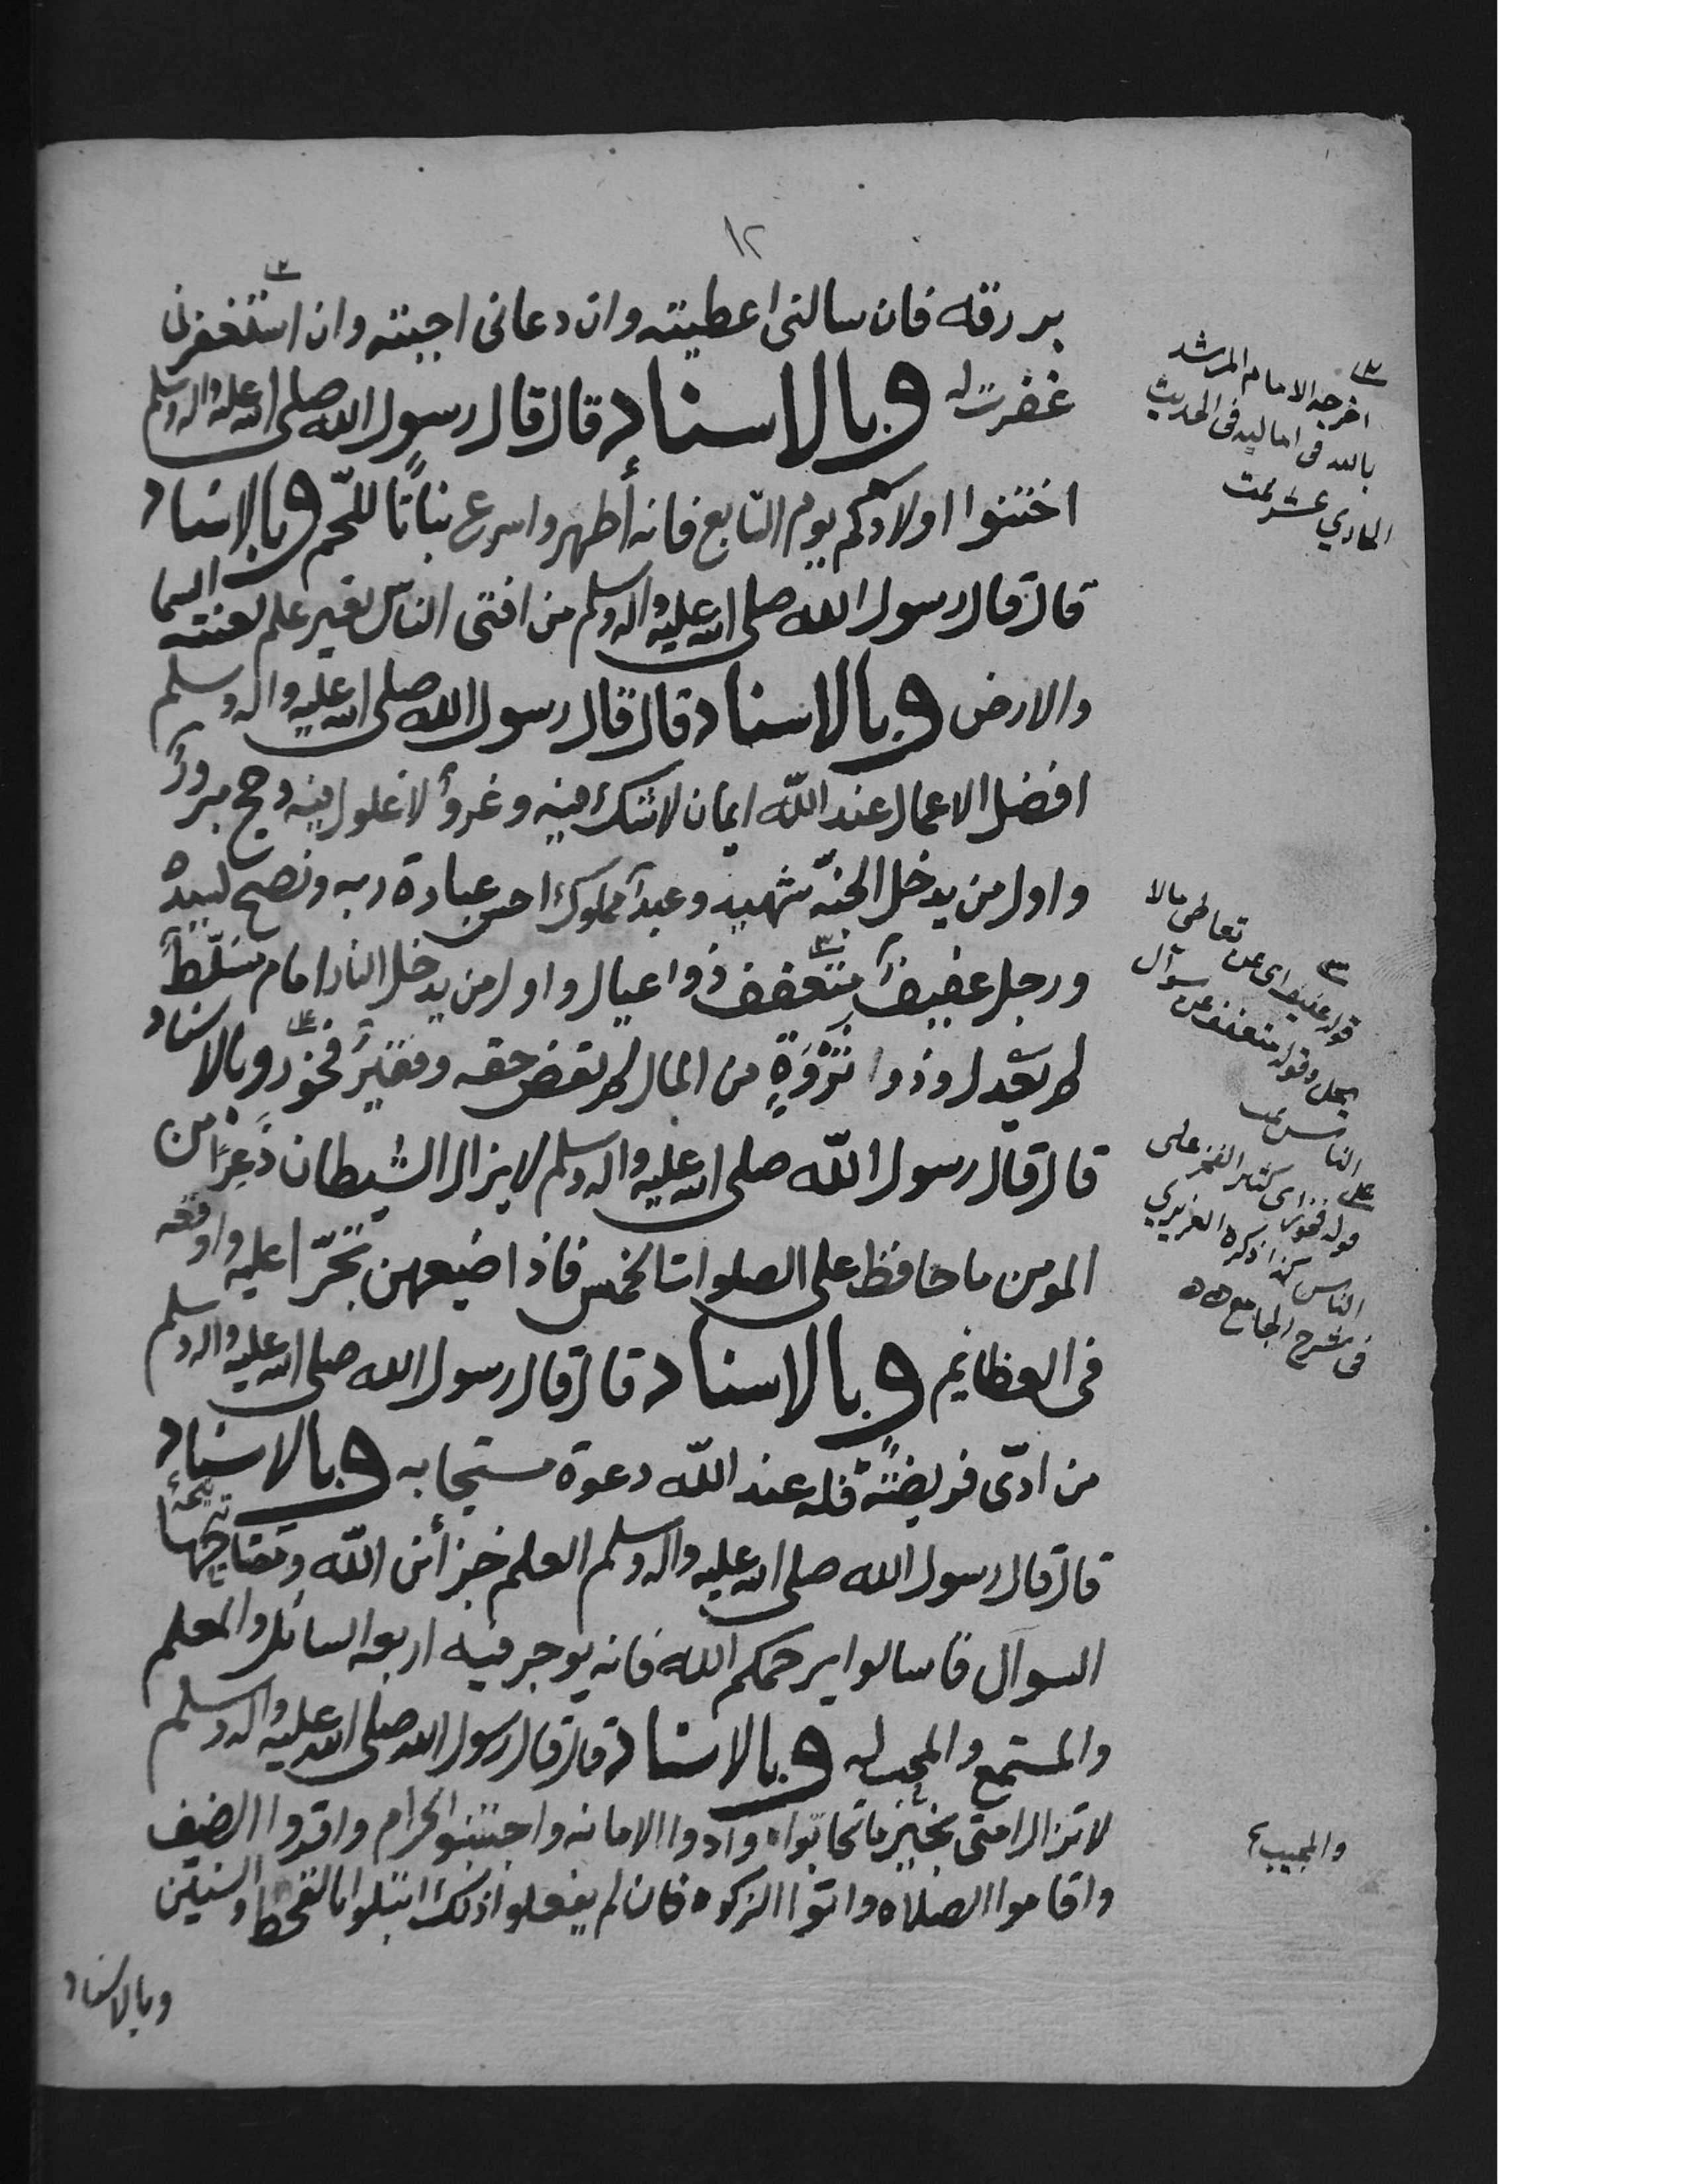 ١٢
برزقه فان سالنى اعطيته وان دعانى اجبته وان استغفرنى
غفرت له وبالاسناد قال قال رسول الله صلى الله عليه واله وسلم
اختنوا اولادكم يوم السابع فانه أطهر واسرع نباتًا للحم وبالاسناد
قال قال رسول الله صلى الله عليه واله وسلم من افتى الناس بغير علم لعنته السما
والارض وبالاسناد قال قال رسول الله صلى الله عليه واله وسلم
افضل الاعمال عند الله ايمان لاشك فيه وغزوٌ لا غلول فيه وحج مبرورٌ
واول من يدخل الجنّة شهيد وعبدٌ مملوك احسن عبادة ربه ونصح لسيده
ورجل عفيفٌ متعفف ذوا عيال واول من يدخل النار امام متسلّطٌ
لم يعدل وذوا ثَرْوَةٍ من المال لم يقض حقه وفقيرٌ فخورٌ وبالاسناد
قال قال رسول الله صلى الله عليه واله وسلم لايزال الشيطان ذَعِرًا من
المومن ما حافظ على الصلوات الخمس فاذا ضيعهن تجرّا عليه واوقعه
فى العظايم وبالاسناد قال قال رسول الله صلى الله عليه واله وسلم
من ادّى فريضةً فله عند الله دعوة مستجابه وبالاسناد
قال قال رسول الله صلى الله عليه واله وسلم العلم خزائن الله ومفتاحها
السوآل فاسالوا يرحمكم الله فانه يوجر فيه اربعه السائل والمعلم
والمستمع والمحب له وبالاسناد قال قال رسول الله صلى الله عليه واله وسلم
لا تزال امتى بخيرٍ ماتحابّوا وادوا الامانه واجتنبو الحرام واقروا الضيف
واقاموا الصلاه واتوا الزكوه فان لم يفعلوا ذلك ابتلوا بالقحط والسنين
وبالاسناد
اخرجه الامام المرشد
بالله فى اماليه فى الحديث
الحادي عشر تمت
قوله عفيف اى عن تعاطى مالا
يحل وقوله متعفف عن سوآل
الناس تمت
قوله فخور اى كثير الفخر على
الناس كذا ذكره العزيزي
فى شرح الجامع
والمجيب